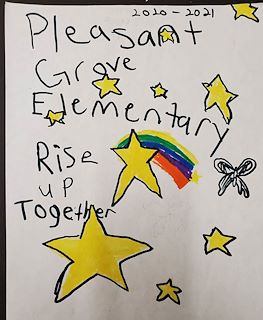 2020-2021
Pleasant
Grove
Elementary
Rise
up
Together